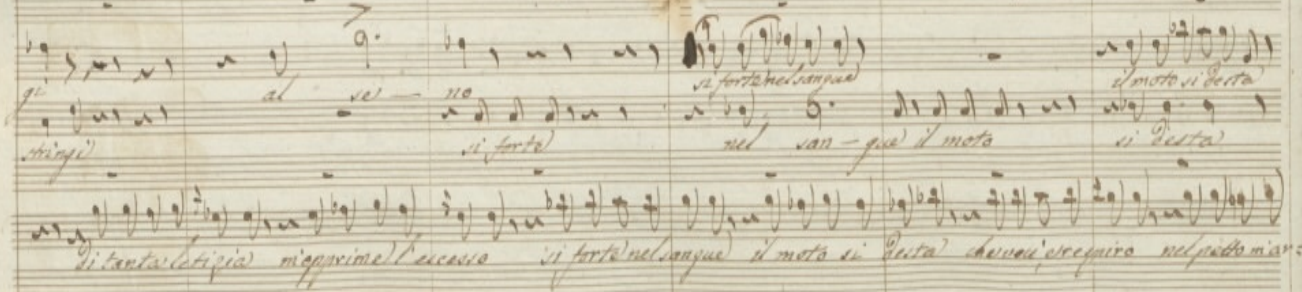 gi al se — no si forte nel sangue il moto si desta
stringi si forte nel san — gue il moto si desta
di tanta letizia m'opprime l'eccesso si forte nel sangue il moto si desta che nel petto m'ar